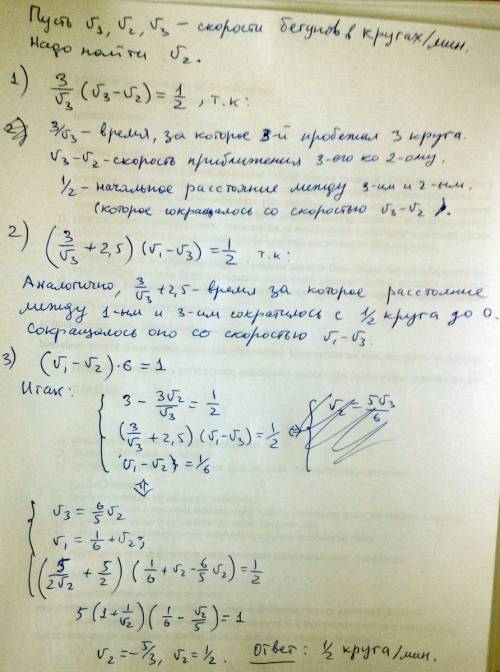 Пусть v₁, v₂, v₃ – скорости бегунов в кругах/мин.
Надо найти v₂.
1) 3/v₃ (v₃ – v₂) = 1/2, т.к:
3/v₃ – время, за которое 3-й пробежал 3 круга.
v₃ – v₂ – скорость приближения 3-его ко 2-ому.
1/2 – начальное расстояние между 3-им и 2-ым.
(которое сокращалось со скоростью v₃ – v₂).
2) (3/v₃ + 2,5) (v₁ – v₃) = 1/2 т.к:
Аналогично, 3/v₃ + 2,5 – время за которое расстояние
между 1-ым и 3-им сократилось с 1/2 круга до 0.
Сокращалось оно со скоростью v₁ – v₃.
3) (v₁ – v₂) · 6 = 1
Итак:
{ 3 – 3v₂/v₃ = 1/2
(3/v₃ + 2,5) (v₁ – v₃) = 1/2 ⇔
v₁ – v₂ = 1/6
⇕
{ v₃ = 6/5 v₂
v₁ = 1/6 + v₂;
(5/2v₂ + 5/2) (1/6 + v₂ – 6/5 v₂) = 1/2
5 (1 + 1/v₂) (1/6 – v₂/5) = 1
v₂ = –5/3, v₂ = 1/2. Ответ: 1/2 круга/мин.